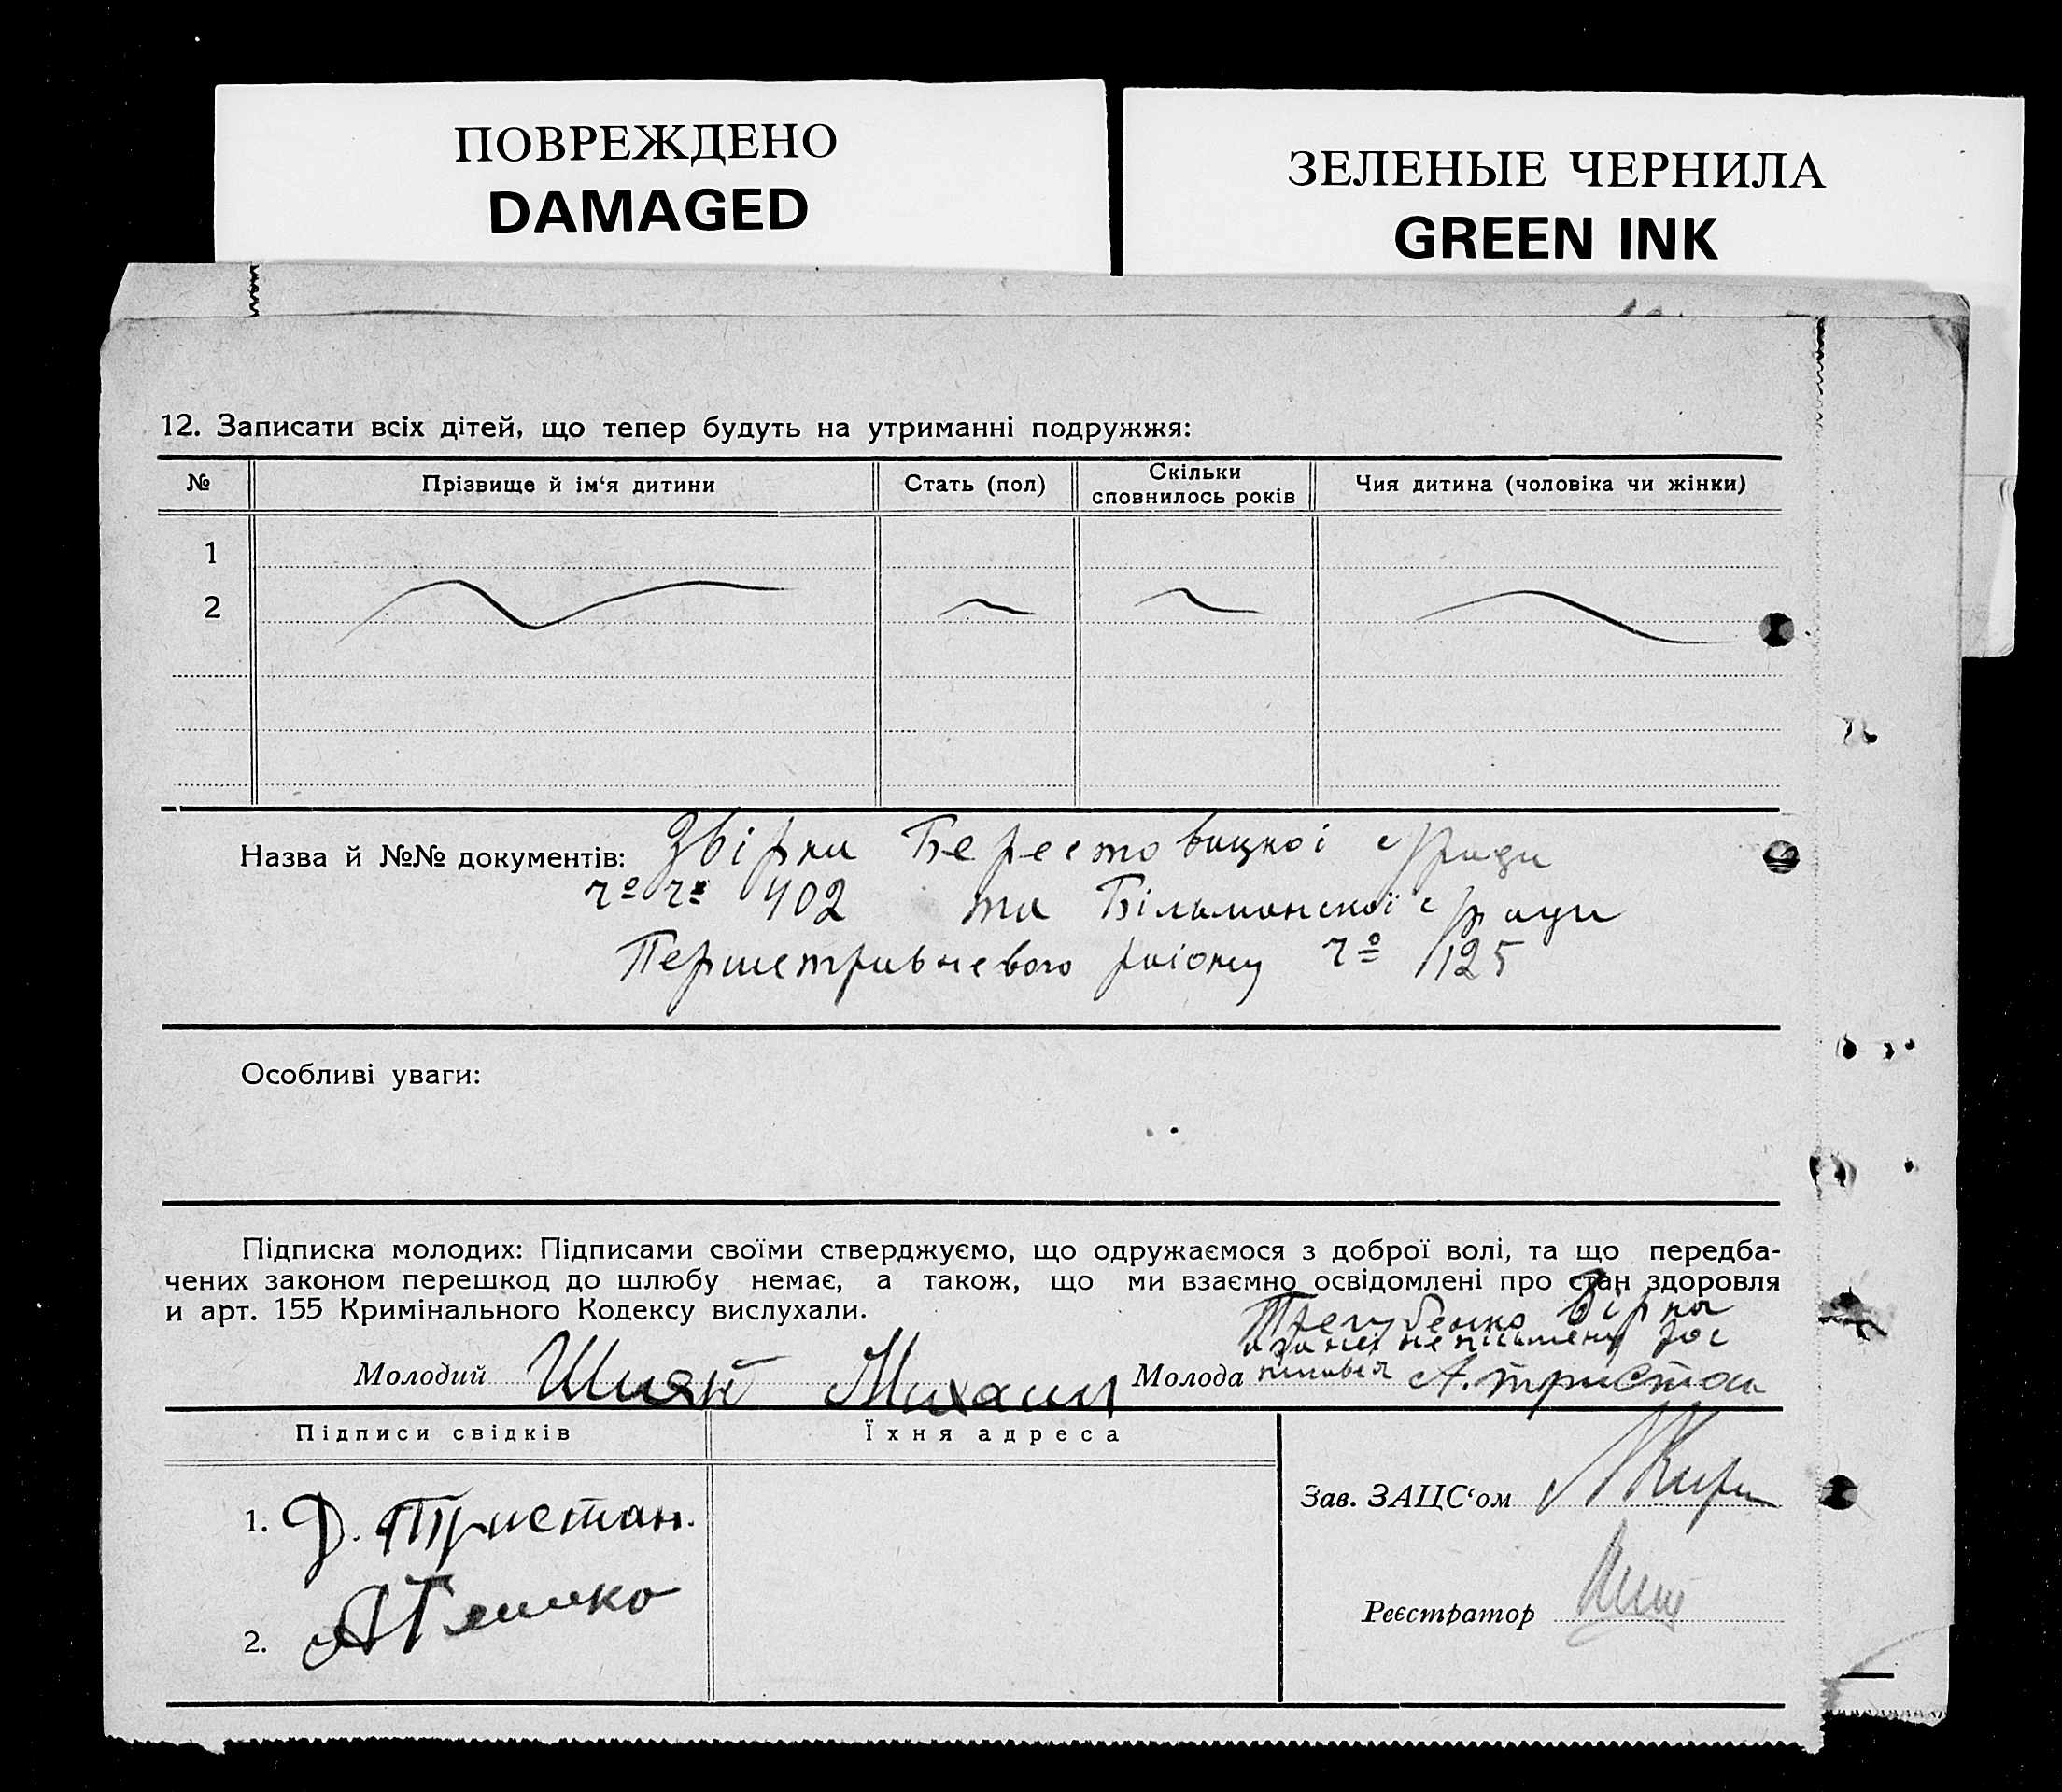 ПОВРЕЖДЕНО
DAMAGED
ЗЕЛЕНЫЕ ЧЕРНИЛА
GREEN INK
12. Записати всіх дітей, що тепер будуть на утриманні подружжя:
№ Прізвище й ім'я дитини Стать (пол) Скільки сповнилось років Чия дитина (чоловіка чи жінки)
1
2
Назва й №№ документів: Звірки Берестовицкої с/ради
402 та Більманської с/ради
Першетравневого району 125
Особливі уваги:
Підписка молодих: Підписами своїми стверджуємо, що одружаємося з доброї волі, та що передба-
чених законом перешкод до шлюбу немає, а також, що ми взаємно освідомлені про стан здоровля
и арт. 155 Кримінального Кодексу вислухали.
Молодий Шиян Михаил
Молода А. Тристан
Підписи свідків Їхня адреса
1. Д. Тристан.
2.
Зав. ЗАЦС'ом
Реєстратор